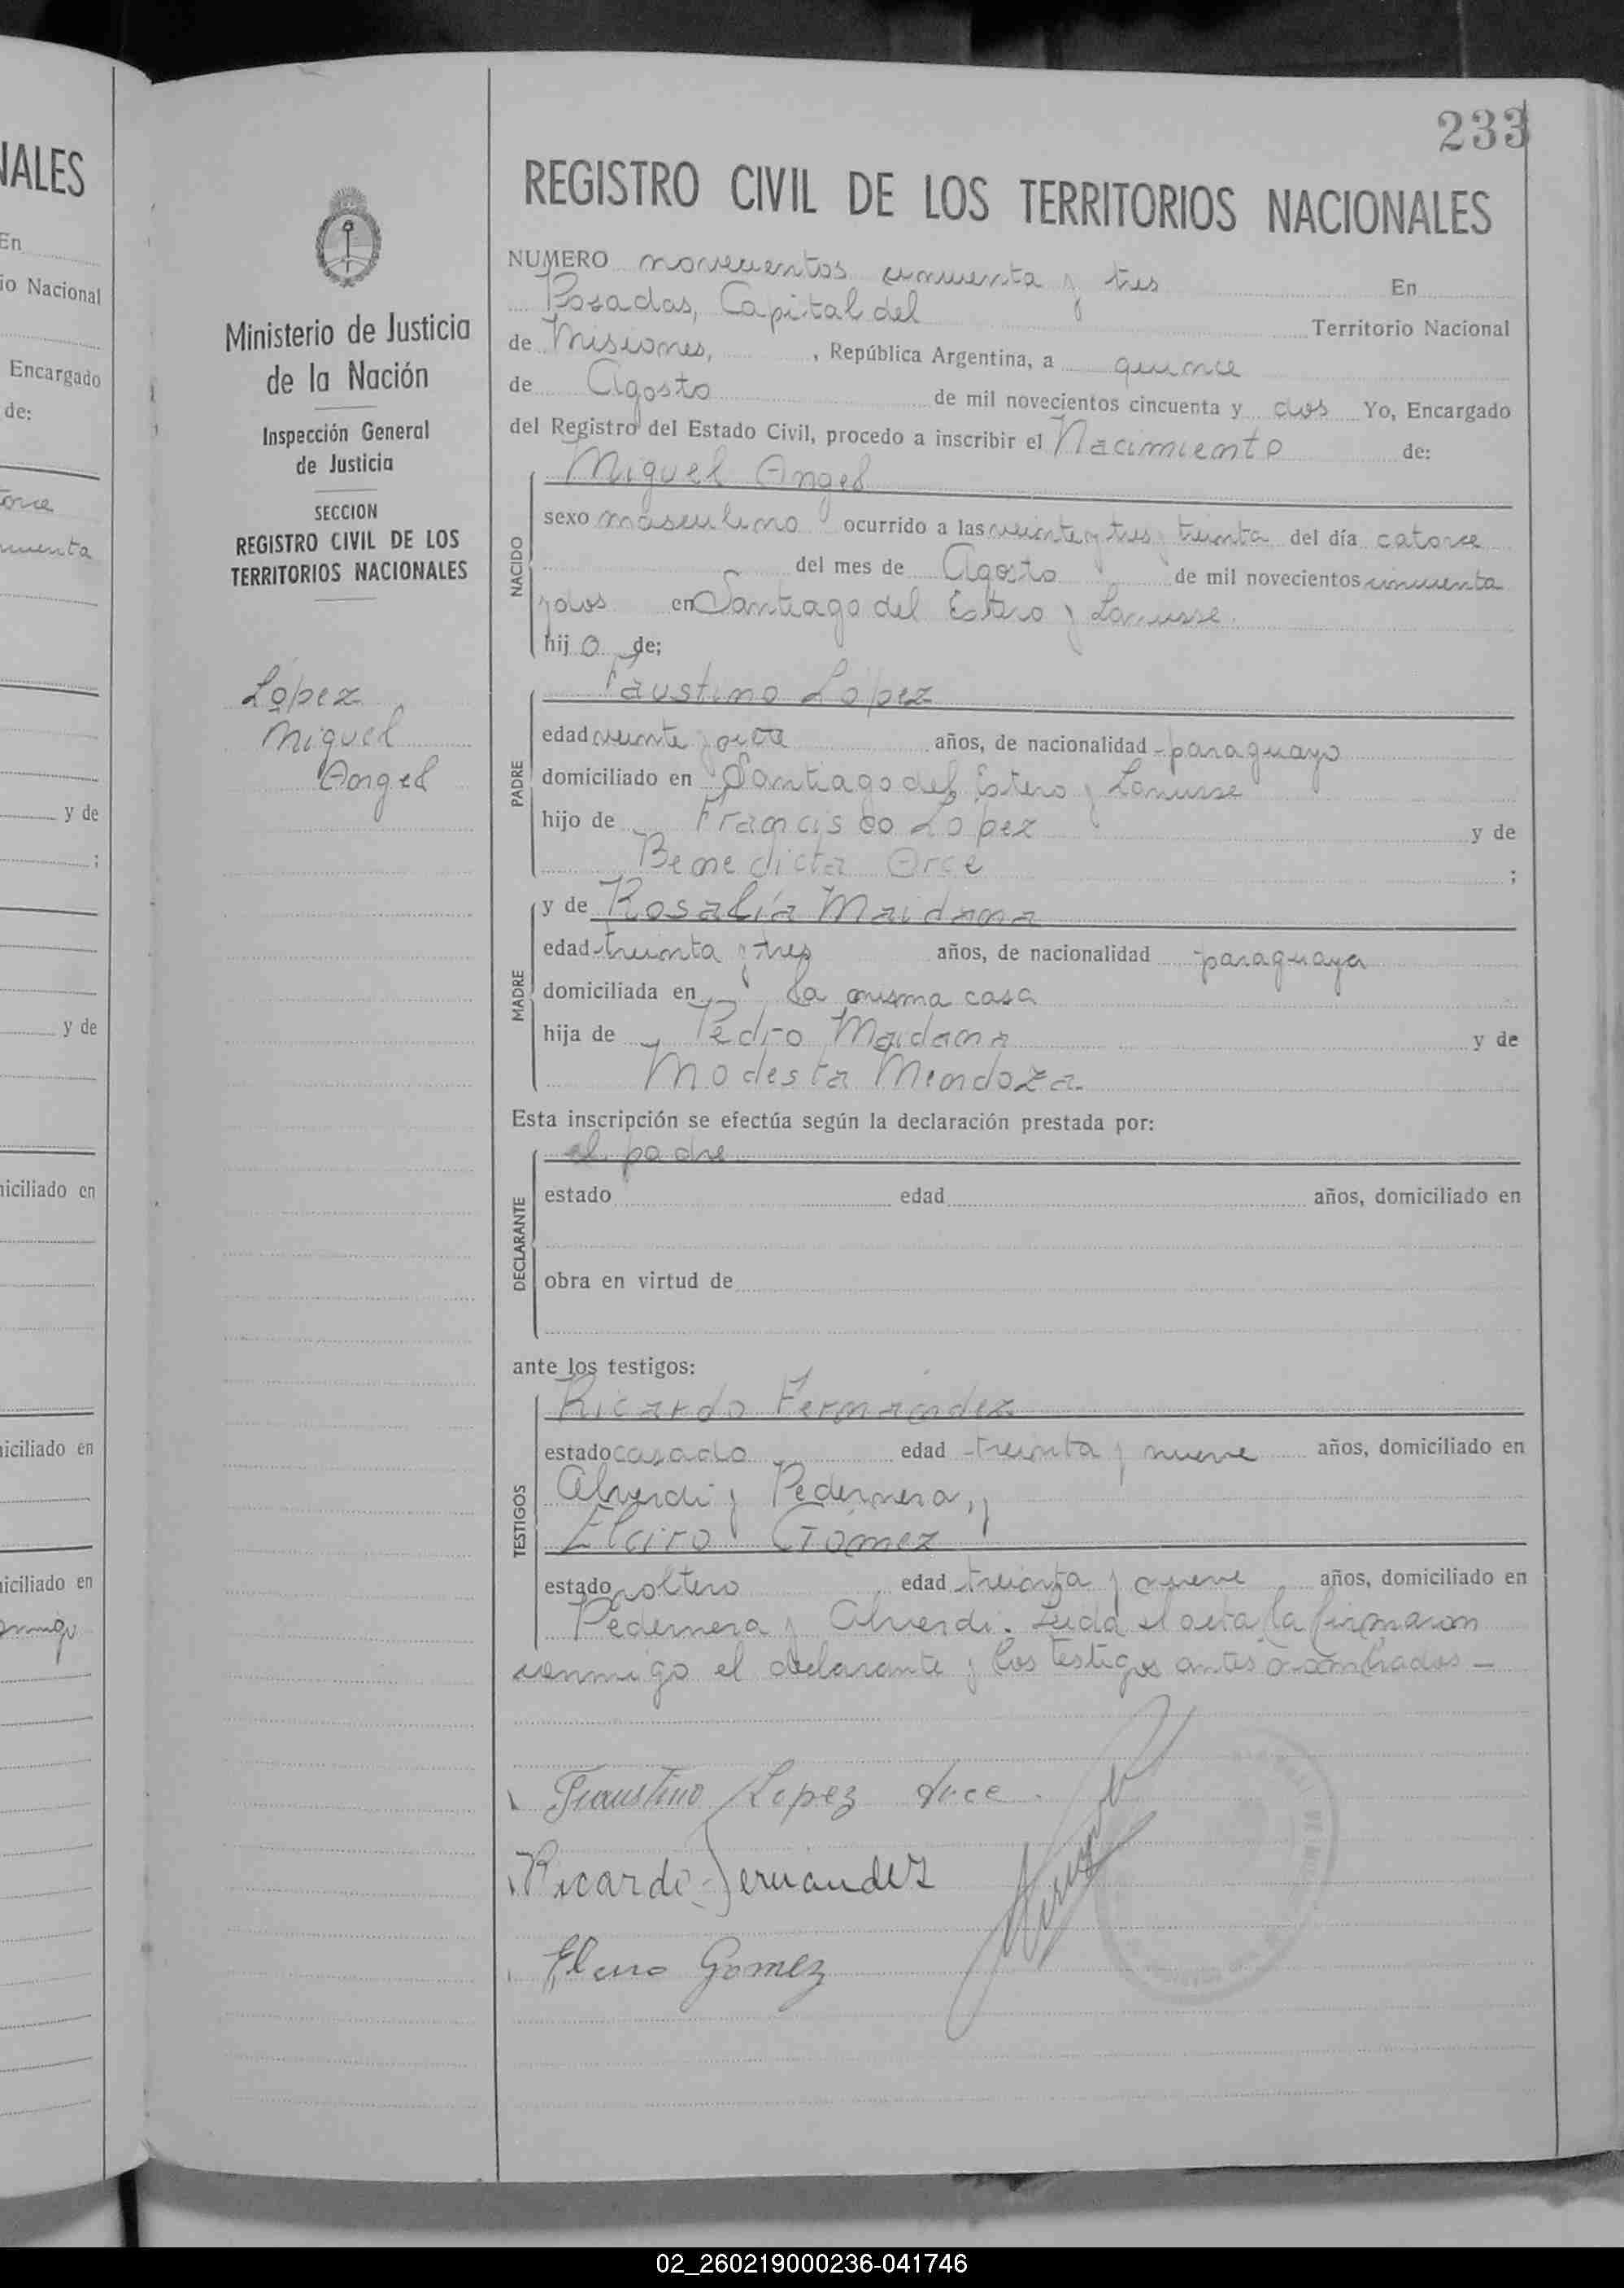 NALES
En
io Nacional
Encargado
de:
orce
cuenta
y de
;
y de
iciliado en
iciliado en
iciliado en
Ministerio de Justicia
de la Nación
Inspección General
de Justicia
SECCION
REGISTRO CIVIL DE LOS
TERRITORIOS NACIONALES
López
Miguel
Angel
233
REGISTRO CIVIL DE LOS TERRITORIOS NACIONALES
NUMERO novecientos cincuenta y tres En
Posadas, Capital del Territorio Nacional
de Misiones, , República Argentina, a quince
de Agosto de mil novecientos cincuenta y dos Yo, Encargado
del Registro del Estado Civil, procedo a inscribir el Nacimiento de:
Miguel Angel
NACIDO
sexo masculino ocurrido a las veinte y tres y treinta del día catorce
del mes de Agosto de mil novecientos cincuenta
y dos en Santiago del Estero y Lanusse.
hij o de;
Faustino López
PADRE
edad veinte y años, de nacionalidad paraguayo
domiciliado en Santiago del Estero y Lanusse
hijo de Francisco López y de
Benedicta Arce ;
MADRE
y de Rosalía Maidana
edad treinta y tres años, de nacionalidad paraguaya
domiciliada en la misma casa
hija de Pedro Maidana y de
Modesta Mendoza
Esta inscripción se efectúa según la declaración prestada por:
el padre
DECLARANTE
estado edad años, domiciliado en
obra en virtud de
ante los testigos:
Ricardo Fernández
TESTIGOS
estado casado edad treinta y nueve años, domiciliado en
Alverdi y Pedernera, y
Elciro Gómez
estado soltero edad treinta y nueve años, domiciliado en
Pedernera y Alverdi. Leida el acta la firmaron
conmigo el declarante y los testigos antes nombrados —
Faustino Lopez Arce.
Ricardo Fernandez
Gomez
02_260219000236-041746